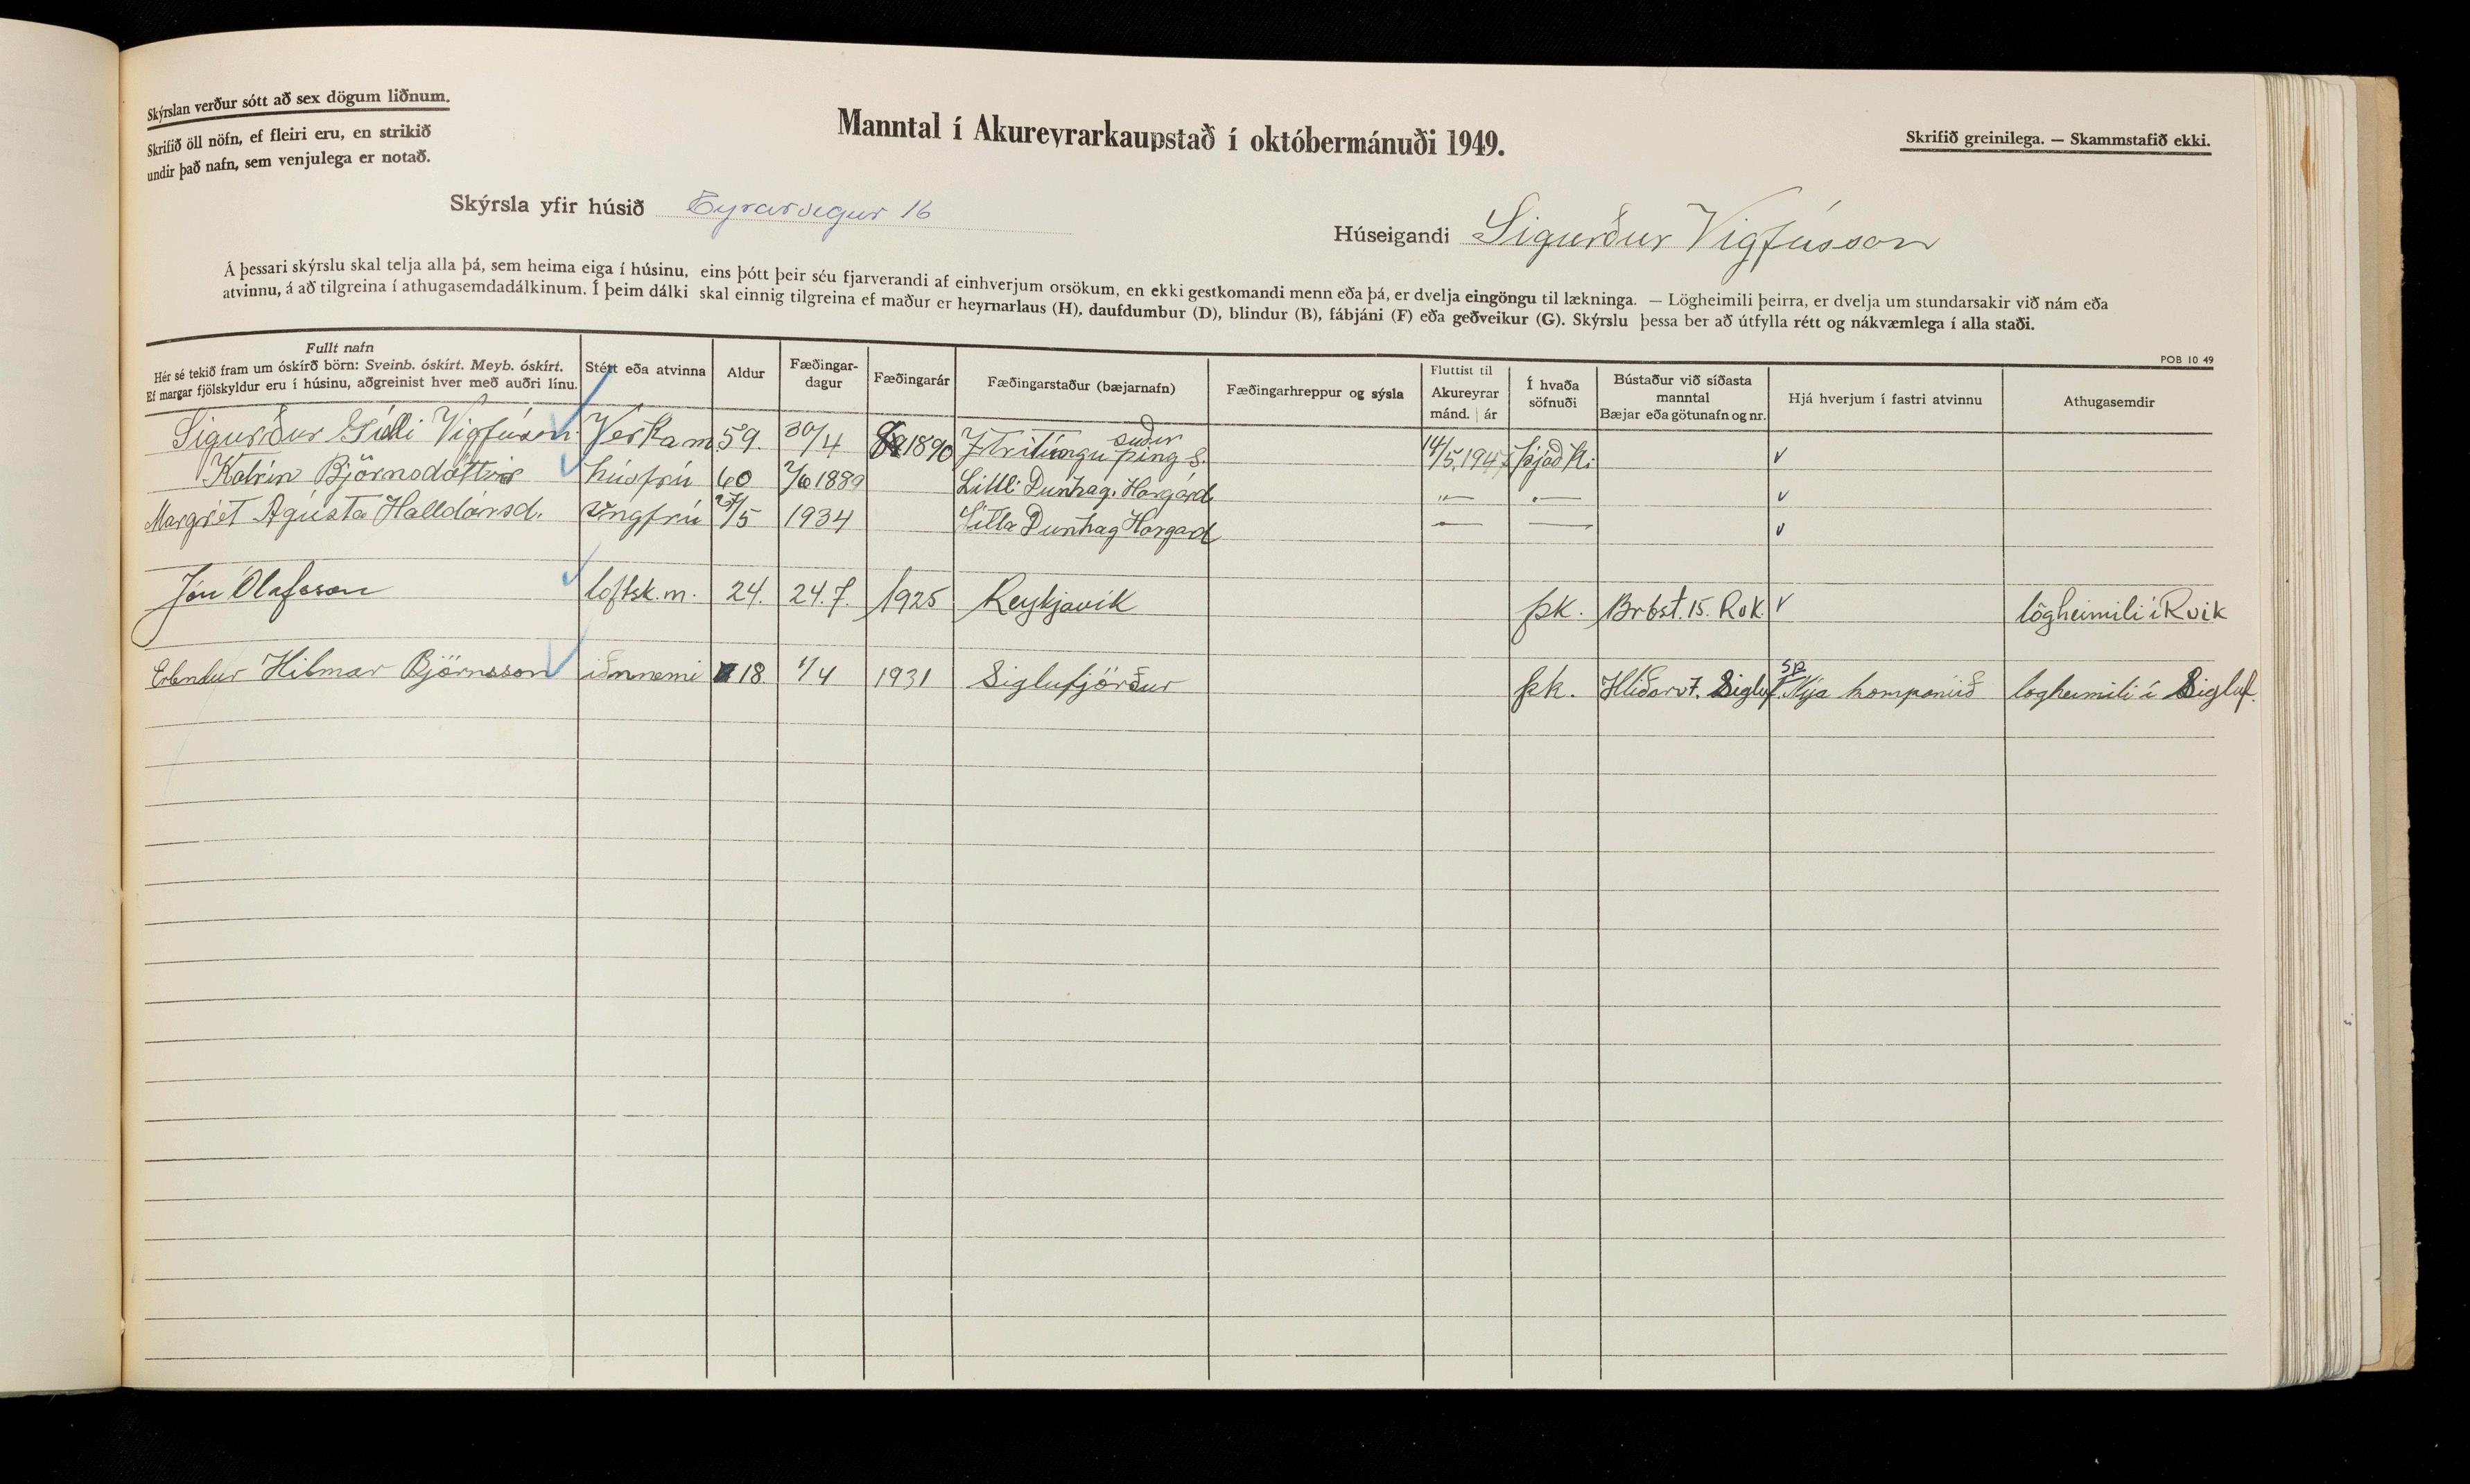 Skýrslan verður sótt að sex dögum liðnum.
Skrifið öll nöfn, ef fleiri eru, en strikið
undir það nafn, sem venjulega er notað.
Manntal í Akureyrarkaupstað í októbermánuði 1949.
Skrifið greinilega. — Skammstafið ekki.
Skýrsla yfir húsið Eyrarvegur 16
Húseigandi Sigurður Vigfússon
Á þessari skýrslu skal telja alla þá, sem heima eiga í húsinu, eins þótt þeir séu fjarverandi af einhverjum orsökum, en ekki gestkomandi menn eða þá, er dvelja eingöngu til lækninga. — Lögheimili þeirra, er dvelja um stundarsakir við nám eða
atvinnu, á að tilgreina í athugasemdadálkinum. Í þeim dálki skal einnig tilgreina ef maður er heyrnarlaus (H), daufdumbur (D), blindur (B), fábjáni (F) eða geðveikur (G). Skýrslu þessa ber að útfylla rétt og nákvæmlega í alla staði.
POB 10 49
Fullt nafn
Hér sé tekið fram um óskírð börn: Sveinb. óskírt. Meyb. óskírt.
Ef margar fjölskyldur eru í húsinu, aðgreinist hver með auðri línu.
Stétt eða atvinna
Aldur
Fæðingar-
dagur
Fæðingarár
Fæðingarstaður (bæjarnafn)
Fæðingarhreppur og sýsla
Fluttist til
Akureyrar
mánd. | ár
Í hvaða
söfnuði
Bústaður við síðasta
manntal
Bæjar eða götunafn og nr.
Hjá hverjum í fastri atvinnu
Athugasemdir
Sigurður Gísli Vigfússon Verkam. 59. 30/4 1890 suður þing s. 14/5 1947 þjóðki
Katrín Björnsdóttir húsfrú 60 2/6 1889 Litli Dunhag. Horgárd — " — — " — v
Margrét Ágústa Halldórsd. ungfrú 27/5 1934 Litla Dunhag Horgard — — v
Jón Ólafsson loftsk.m. 24. 24.7. 1925 Reykjavík þk. Brbst. 15. Rvk. v lögheimili í Rvik
Erlendur Hilmar Björnsson iðnnemi 18. 1/4 1931 Siglufjörður þk. Hlíðarv 7. Sigluf. Nýja kompaníið logheimili í Sigluf.